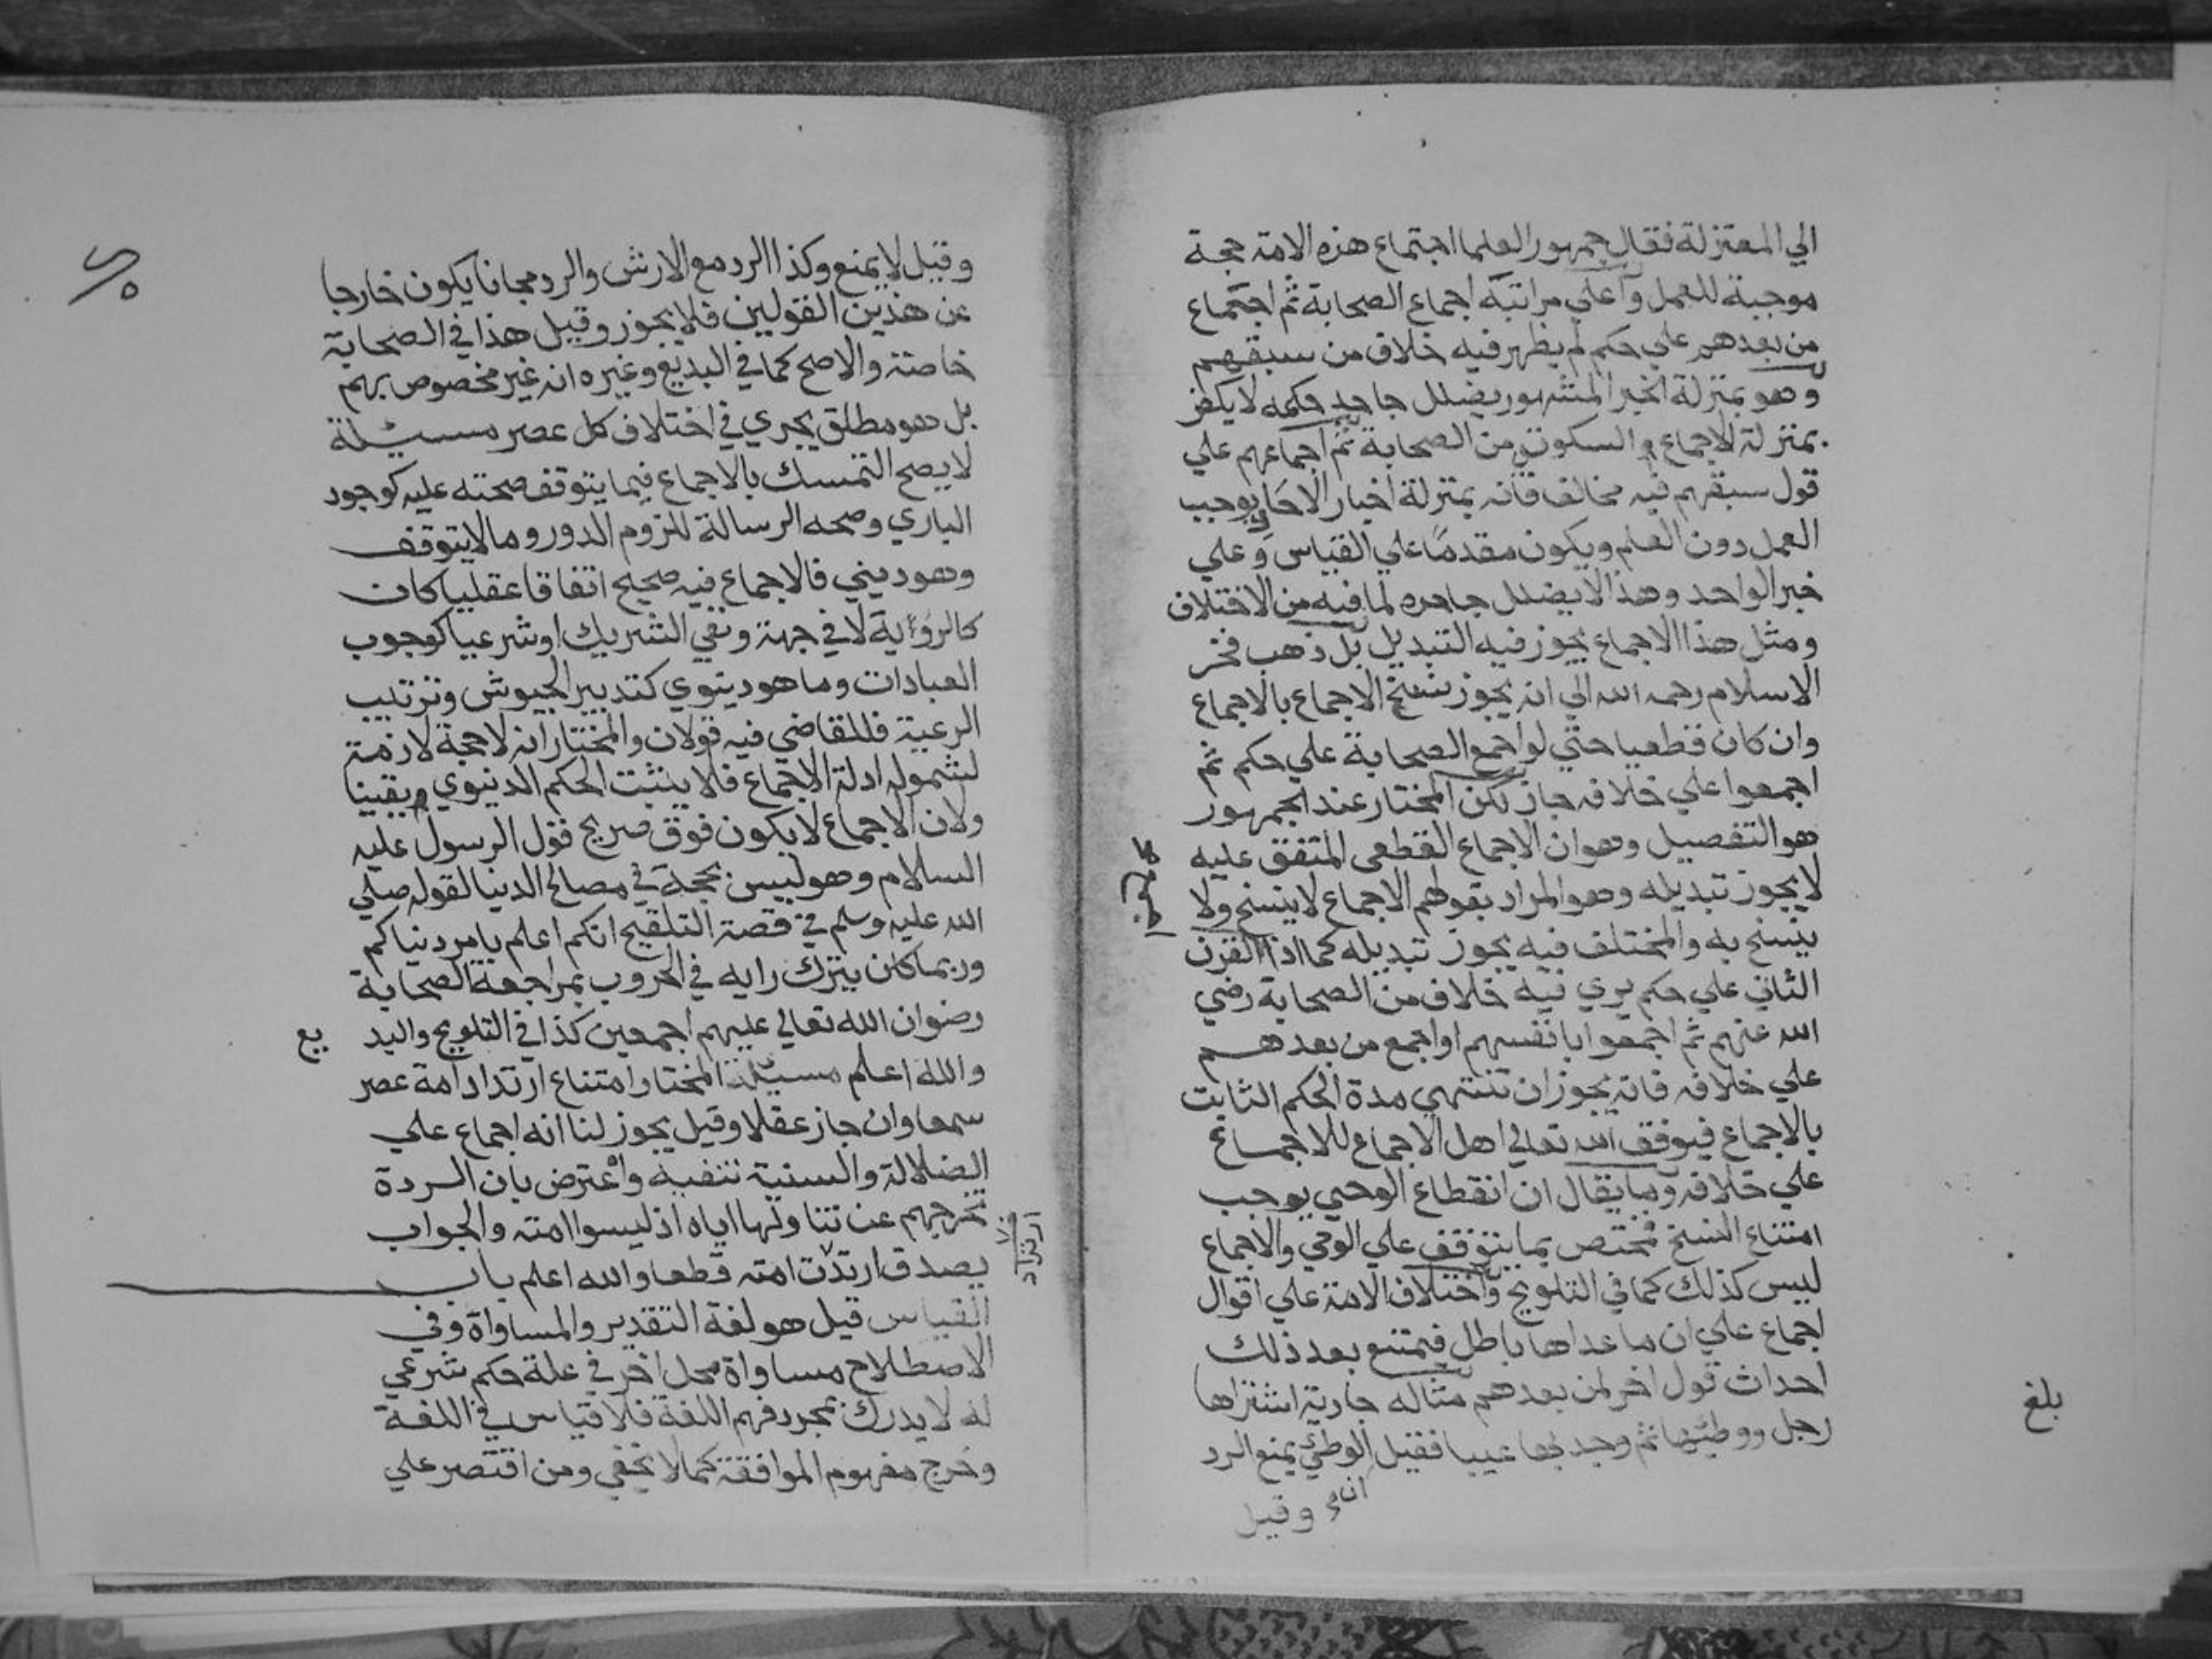 الي المعتزلة فقال جمهور العلما اجتماع هذه الامة حجة
موجبة للعمل واعلي مراتبه اجماع الصحابة ثم اجتماع
من بعدهم علي حكم لم يظهر فيه خلاف من سبقهم
وهو بمنزلة الخبر المشهور يضلل جاحد حكمه لا يكفر
بمنزلة الاجماع السكوتي من الصحابة ثم اجماعهم علي
قول سبقهم فيه مخالف فانه بمنزلة اخبار الاحاد يوجب
العمل دون العلم ويكون مقدما علي القياس وعلي
خبر الواحد وهذا لا يضلل جاحده لما فيه من الاختلاف
ومثل هذا الاجماع يجوز فيه التبديل بل ذهب فخر
الاسلام رحمه الله الي انه يجوز نسخ الاجماع بالاجماع
وان كان قطعيا حتي لو اجمع الصحابة علي حكم ثم
اجمعوا علي خلافه جاز لكن المختار عند الجمهور
هو التفصيل وهو ان الاجماع القطعي المتفق عليه
لا يجوز تبديله وهو المراد بقولهم الاجماع لا ينسخ ولا
ينسخ به والمختلف فيه يجوز تبديله كما اذا القرن
الثاني علي حكم يري فيه خلاف من الصحابة رضي
الله عنهم ثم اجمعوا بانفسهم او اجمع من بعدهم
علي خلافه فانه يجوز ان تنتهي مدة الحكم الثابت
بالاجماع فيوفق الله تعالي اهل الاجماع للاجماع
علي خلافه وما يقال ان انقطاع الوحي يوجب
امتناع النسخ مختص بما يتوقف علي الوحي والاجماع
ليس كذلك كما في التلويح واختلاف الامة علي اقوال
اجماع علي ان ما عداها باطل فيمتنع بعد ذلك
احداث قول اخر لمن بعدهم مثاله جارية اشتراها
رجل ووطئها ثم وجد بها عيبا فقيل الوطئ يمنع الرد
وقيل
بلغ
وقيل لا يمنع وكذا الرد مع الارش والرد مجانا يكون خارجا
عن هذين القولين فلا يجوز وقيل هذا في الصحابة
خاصة والاصح كما في البديع وغيره انه غير مخصوص بهم
بل هو مطلق يجري في اختلاف كل عصر مسئلة
لا يصح التمسك بالاجماع فيما يتوقف صحته عليه كوجود
الباري وصحه الرسالة للزوم الدور وما لا يتوقف
وهو ديني فالاجماع فيه صحيح اتفاقا عقليا كان
كالرؤية لا في جهة ونفي الشريك او شرعيا كوجوب
العبادات وما هو دينوي كتدبير الجيوش وترتيب
الرعية فللقاضي فيه قولان والمختار انه لا حجة لازمة
لشموله ادلة الاجماع فلا يثبت الحكم الدنيوي يقينا
ولان الاجماع لا يكون فوق صريح قول الرسول عليه
السلام وهو ليس بحجة في مصالح الدنيا لقوله صلي
الله عليه وسلم في قصة التلقيح انكم اعلم بامر دنياكم
وربما كان يترك رايه في الحروب بمراجعة الصحابة
رضوان الله تعالي عليهم اجمعين كذا في التلويح والبد يع
والله اعلم مسئلة المختار امتناع ارتداد امة عصر
سمعا وان جاز عقلا وقيل يجوز لنا انه اجماع علي
الضلالة والسنية تنفيه واعترض بان الردة
تخرجهم عن تناولها اياه اذ ليسوا امته والجواب
يصدق ارتدت امته قطعا والله اعلم باب
القياس قيل هو لغة التقدير والمساواة وفي
الاصطلاح مساواة محل اخر في علة حكم شرعي
له لا يدرك بمجرد فهم اللغة فلا قياس في اللغة
وخرج مفهوم الموافقة كما لا يخفي ومن اقتصر علي